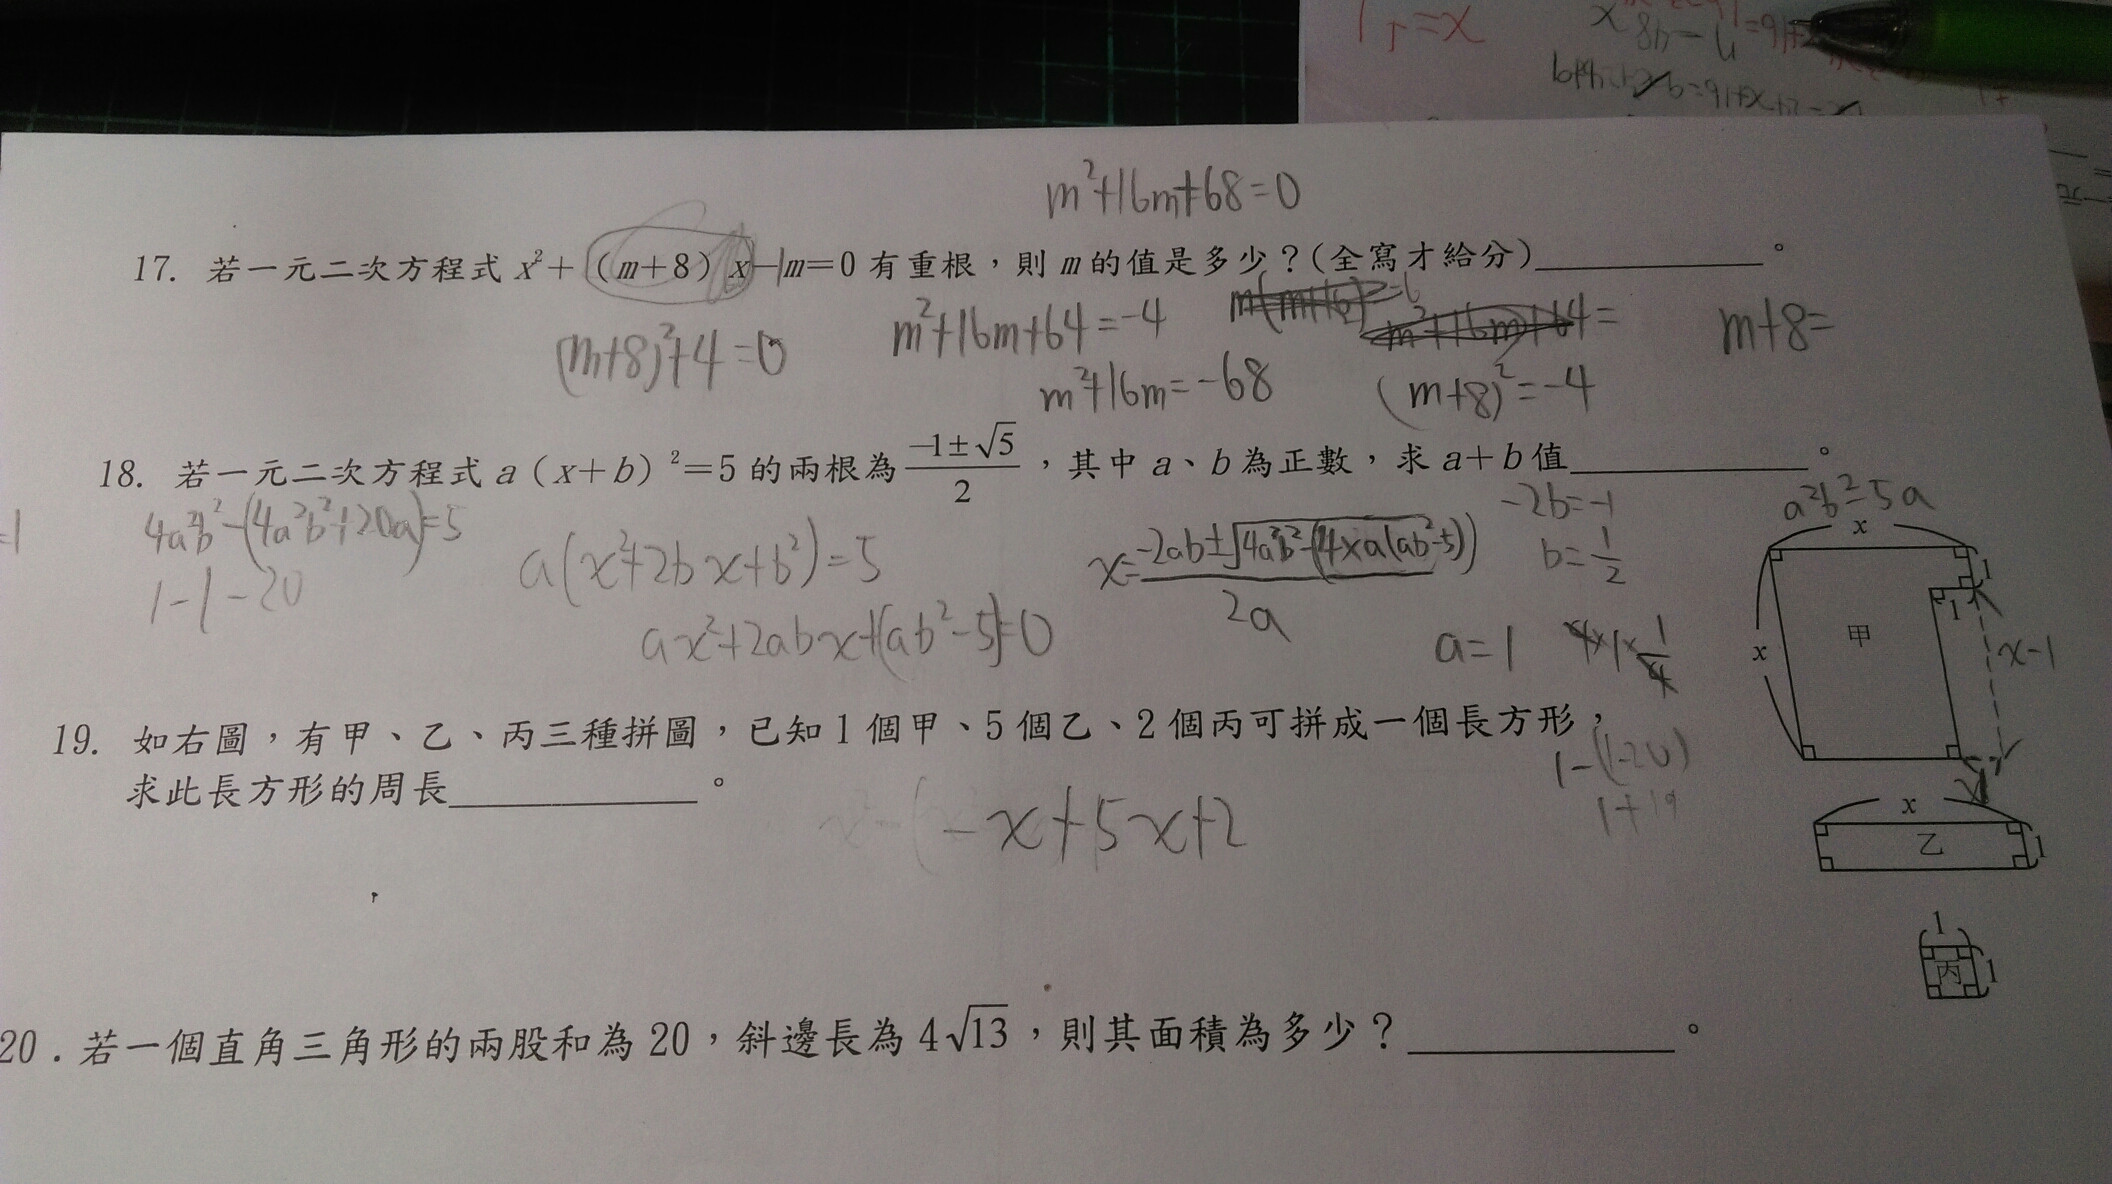 m²+16m+68=0
17. 若一元二次方程式 x²+(m+8)x-m=0 有重根,則 m 的值是多少?(全寫才給分)____________。
(m+8)²+4=0
m²+16m+64=-4
m²+16m=-68
(m+8)²=-4
m+8=
18. 若一元二次方程式 a(x+b)²=5 的兩根為 (-1±√5)/2,其中 a、b 為正數,求 a+b 值____________。
4a²b²-(4a²b²+20a)=5
1-1-20
a(x²+2bx+b²)=5
ax²+2abx+(ab²-5)=0
x=(-2ab±√(4a²b²-(4×a(ab²-5))))/2a
-2b=-1
b=1/2
a=1
4×1×1/4
a²b²-5a
x
1
1
甲
x
x-1
19. 如右圖,有甲、乙、丙三種拼圖,已知 1 個甲、5 個乙、2 個丙可拼成一個長方形,
求此長方形的周長____________。
1-(1-20)
1+19
-x+5x+2
x
乙
1
1
丙
1
20.若一個直角三角形的兩股和為 20,斜邊長為 4√13,則其面積為多少?____________。